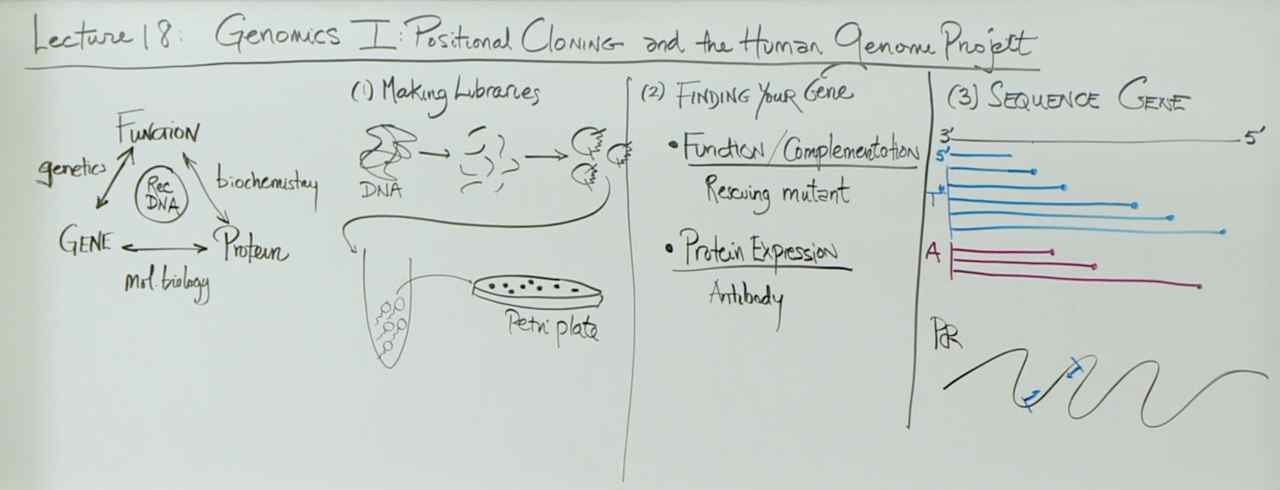 Lecture 18: Genomics I: Positional Cloning and the Human Genome Project
Function
genetics
Rec
DNA
biochemistry
GENE
Protein
Mol. biology
(1) Making Libraries
DNA
Petri plate
(2) FINDING YOUR Gene
• Function/Complementation
Rescuing mutant
• Protein Expression
Antibody
(3) SEQUENCE GENE
3' 5'
5'
T*
A
PCR